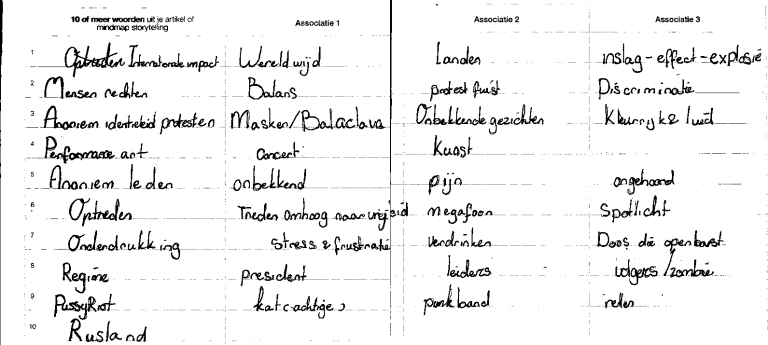 10 of meer woorden uit je artikel of mindmap storytelling Associatie 1 Associatie 2 Associatie 3
1 Optreden Internationale impact Wereld wijd Landen inslag - effect - explosie
2 Mensen rechten Balans protest fuist Discriminatie
3 Anoniem identiteid protesten Masker/Balaclava Onbekkende gezichten Kleurryk & luid
4 Performance art Concert Kunst
5 Anoniem leden onbekkend pijn ongehoord
6 Optreden Treden omhoog naar vrijheid megafoon Spotlicht
7 Onderdrukking stress & frustratie verdrinken Doos die openbarst
8 Regime president leiders volgers/zombie
9 PussyRiot katcachtige punkband rellen
10 Rusland